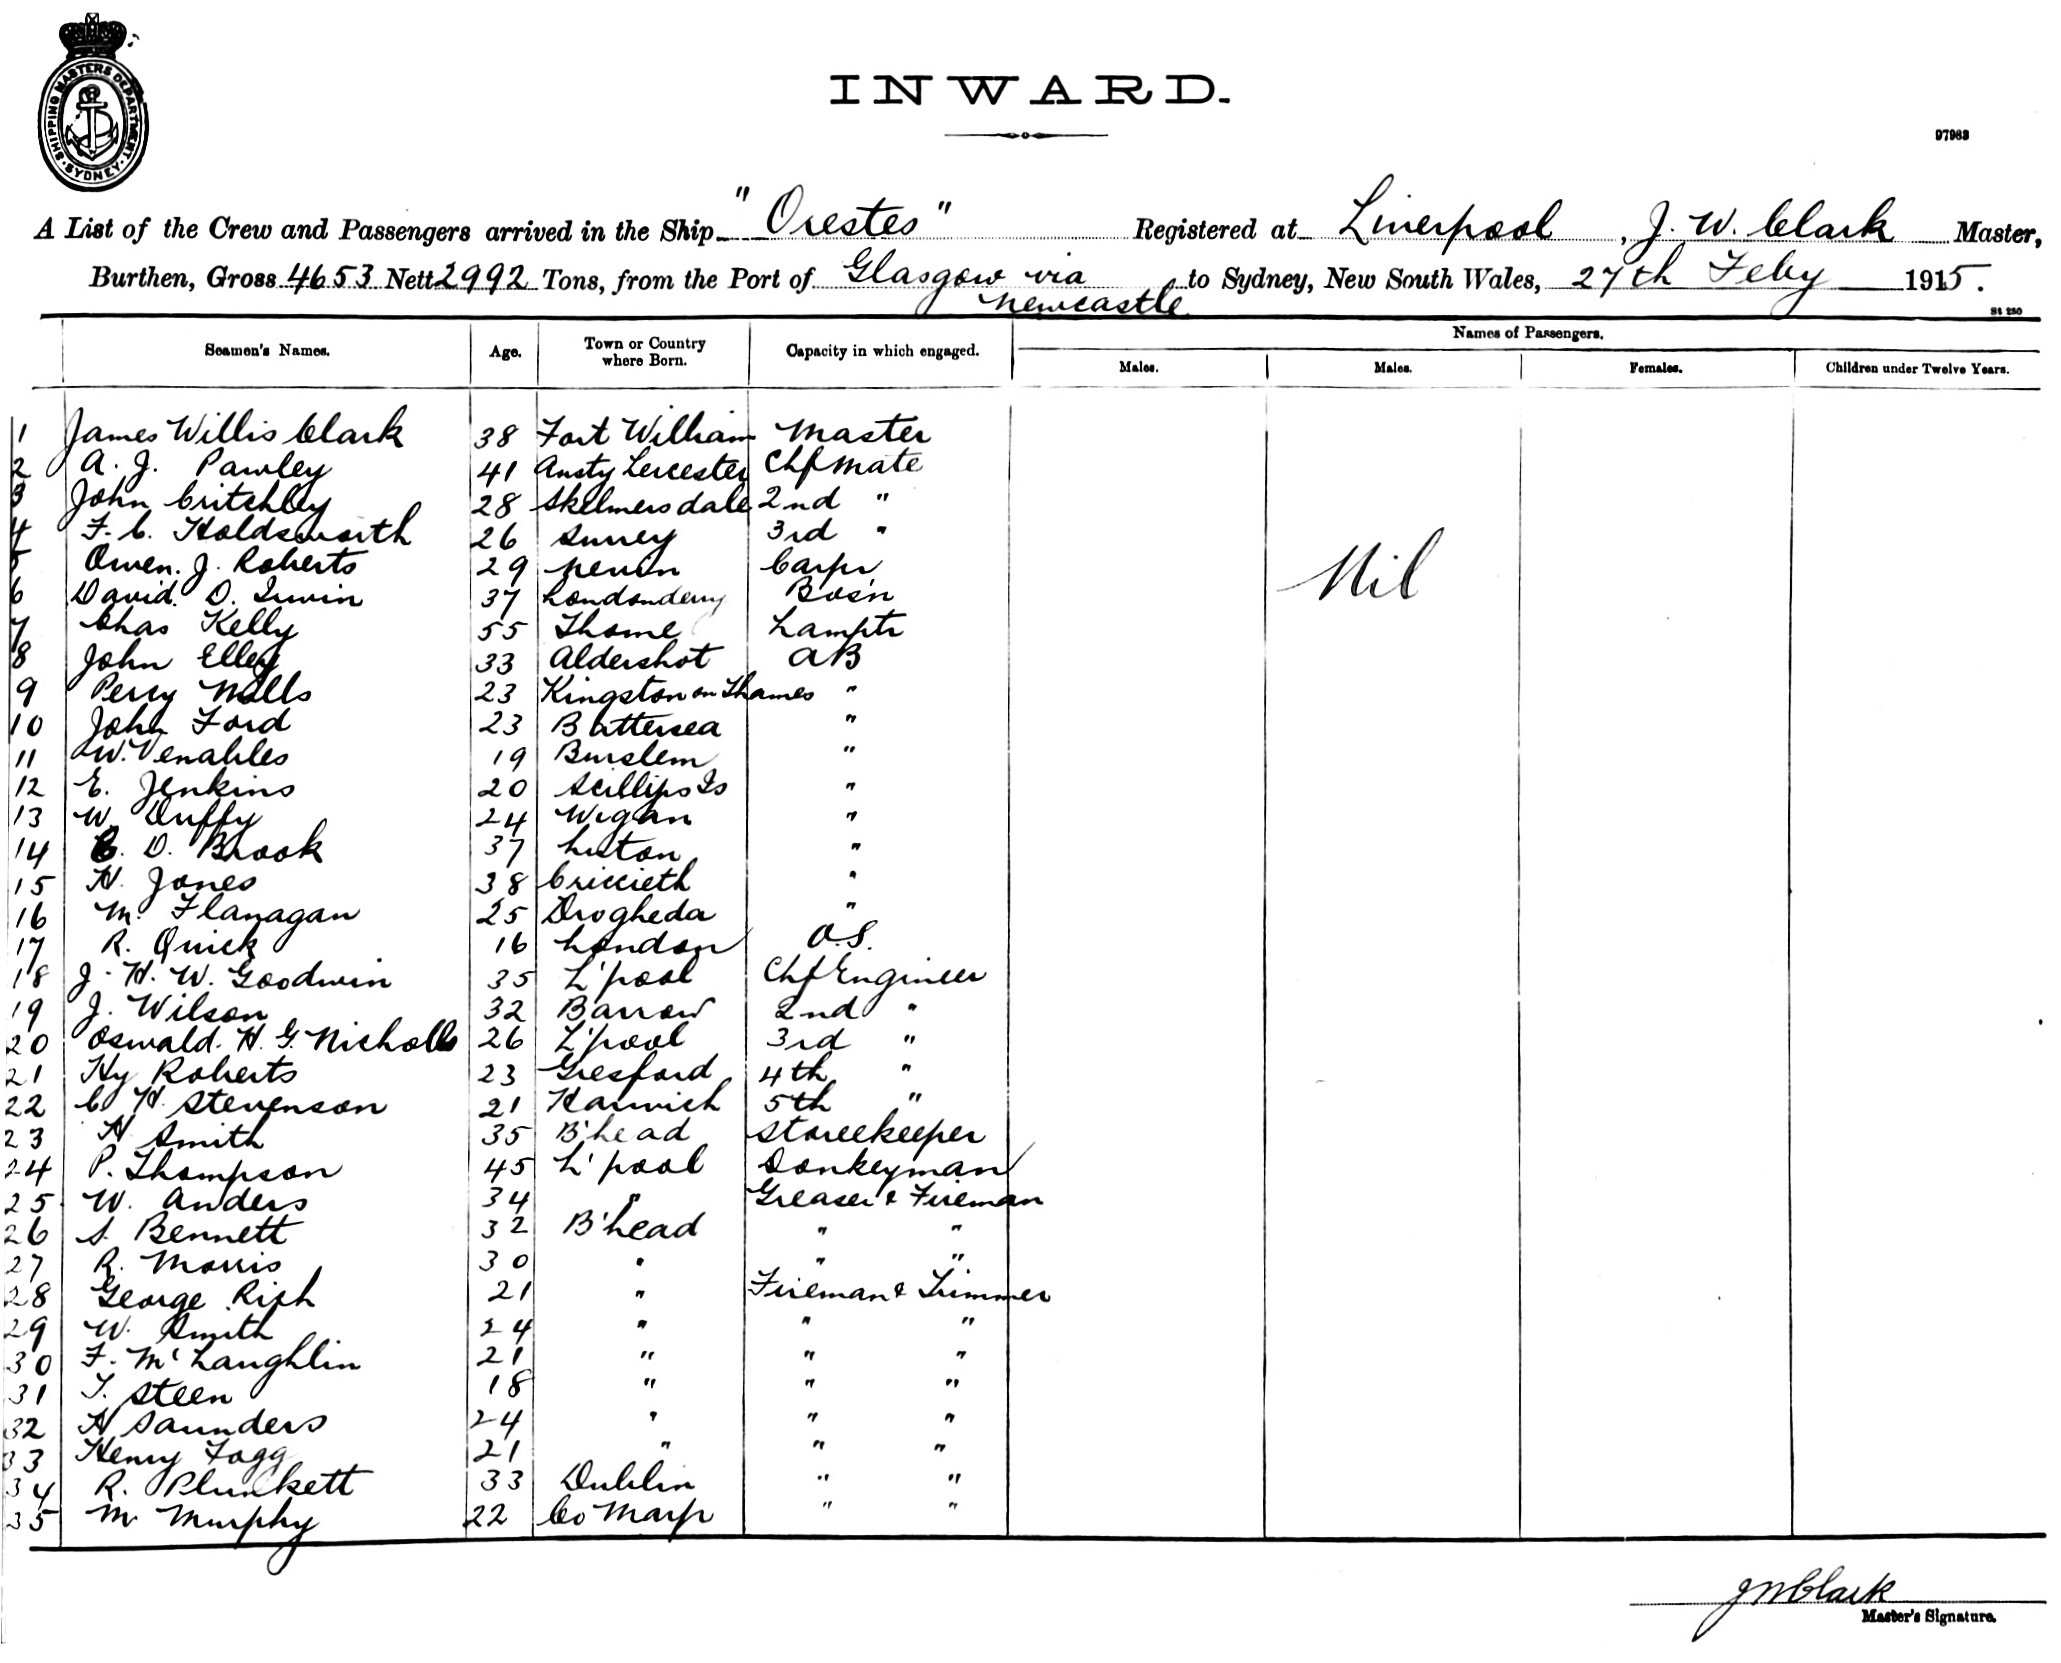 SHIPPING MASTERS DEPARTMENT. SYDNEY
INWARD.
97983
A List of the Crew and Passengers arrived in the Ship "Orestes" Registered at Liverpool, J. W. Clark Master,
Burthen, Gross 4653 Nett 2992 Tons, from the Port of Glasgow via Newcastle to Sydney, New South Wales, 27th Feby 1915.
St 250
Seamen's Names. Age. Town or Country where Born. Capacity in which engaged. Names of Passengers.
Males. Males. Females. Children under Twelve Years.
1 James Willis Clark 38 Fort William Master
2 A. J. Pawley 41 Ansty Leicester Chf Mate
3 John Critchley 28 Skelmersdale 2nd "
4 F. C. Holdsworth 26 Surrey 3rd "
5 Owen. J. Roberts 29 Nevin Carpr
6 David. D. Irwin 37 Londonderry Bos'n
7 Chas Kelly 55 Thome Lamptr
8 John Elley 33 Aldershot AB
9 Percy Mills 23 Kingston on Thames "
10 John Ford 23 Battersea "
11 W. Venables 19 Burslem "
12 E. Jenkins 20 Scillyps Is "
13 W. Duffy 24 Wigan "
14 C. D. Brook 37 Luton "
15 H. Jones 38 Criccieth "
16 M. Flanagan 25 Drogheda "
17 R. Quick 16 London O.S.
18 J. H. W. Goodwin 35 L'pool Chf Engineer
19 J. Wilson 32 Barrow 2nd "
20 Oswald. H. G. Nicholls 26 L'pool 3rd "
21 Hy Roberts 23 Gresford 4th "
22 C H. Stevenson 21 Harwich 5th "
23 H Smith 35 B'head Storeekeeper
24 P. Thompson 45 L'pool Donkeyman
25 W. Anders 34 " Greaser & Fireman
26 S. Bennett 32 B'head " "
27 R. Morris 30 " " "
28 George Rish 21 " Fireman & Trimmer
29 W. Smith 24 " " "
30 F. McLaughlin 21 " " "
31 T. Steen 18 " " "
32 H Saunders 24 " " "
33 Henry Fogg 21 " " "
34 R. Plunkett 33 Dublin " "
35 M Murphy 22 Co Marp " "
Nil
J W Clark
Master's Signature.